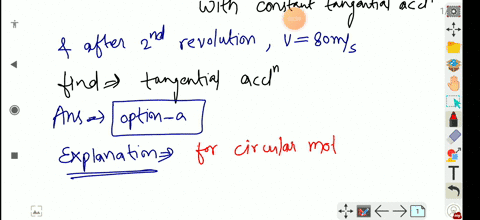 with constant tangential accl
& after 2nd revolution, V=80m/s
find⇒ tangential acclⁿ
Ans→ option-a
Explanation⇒ for circular mot
1